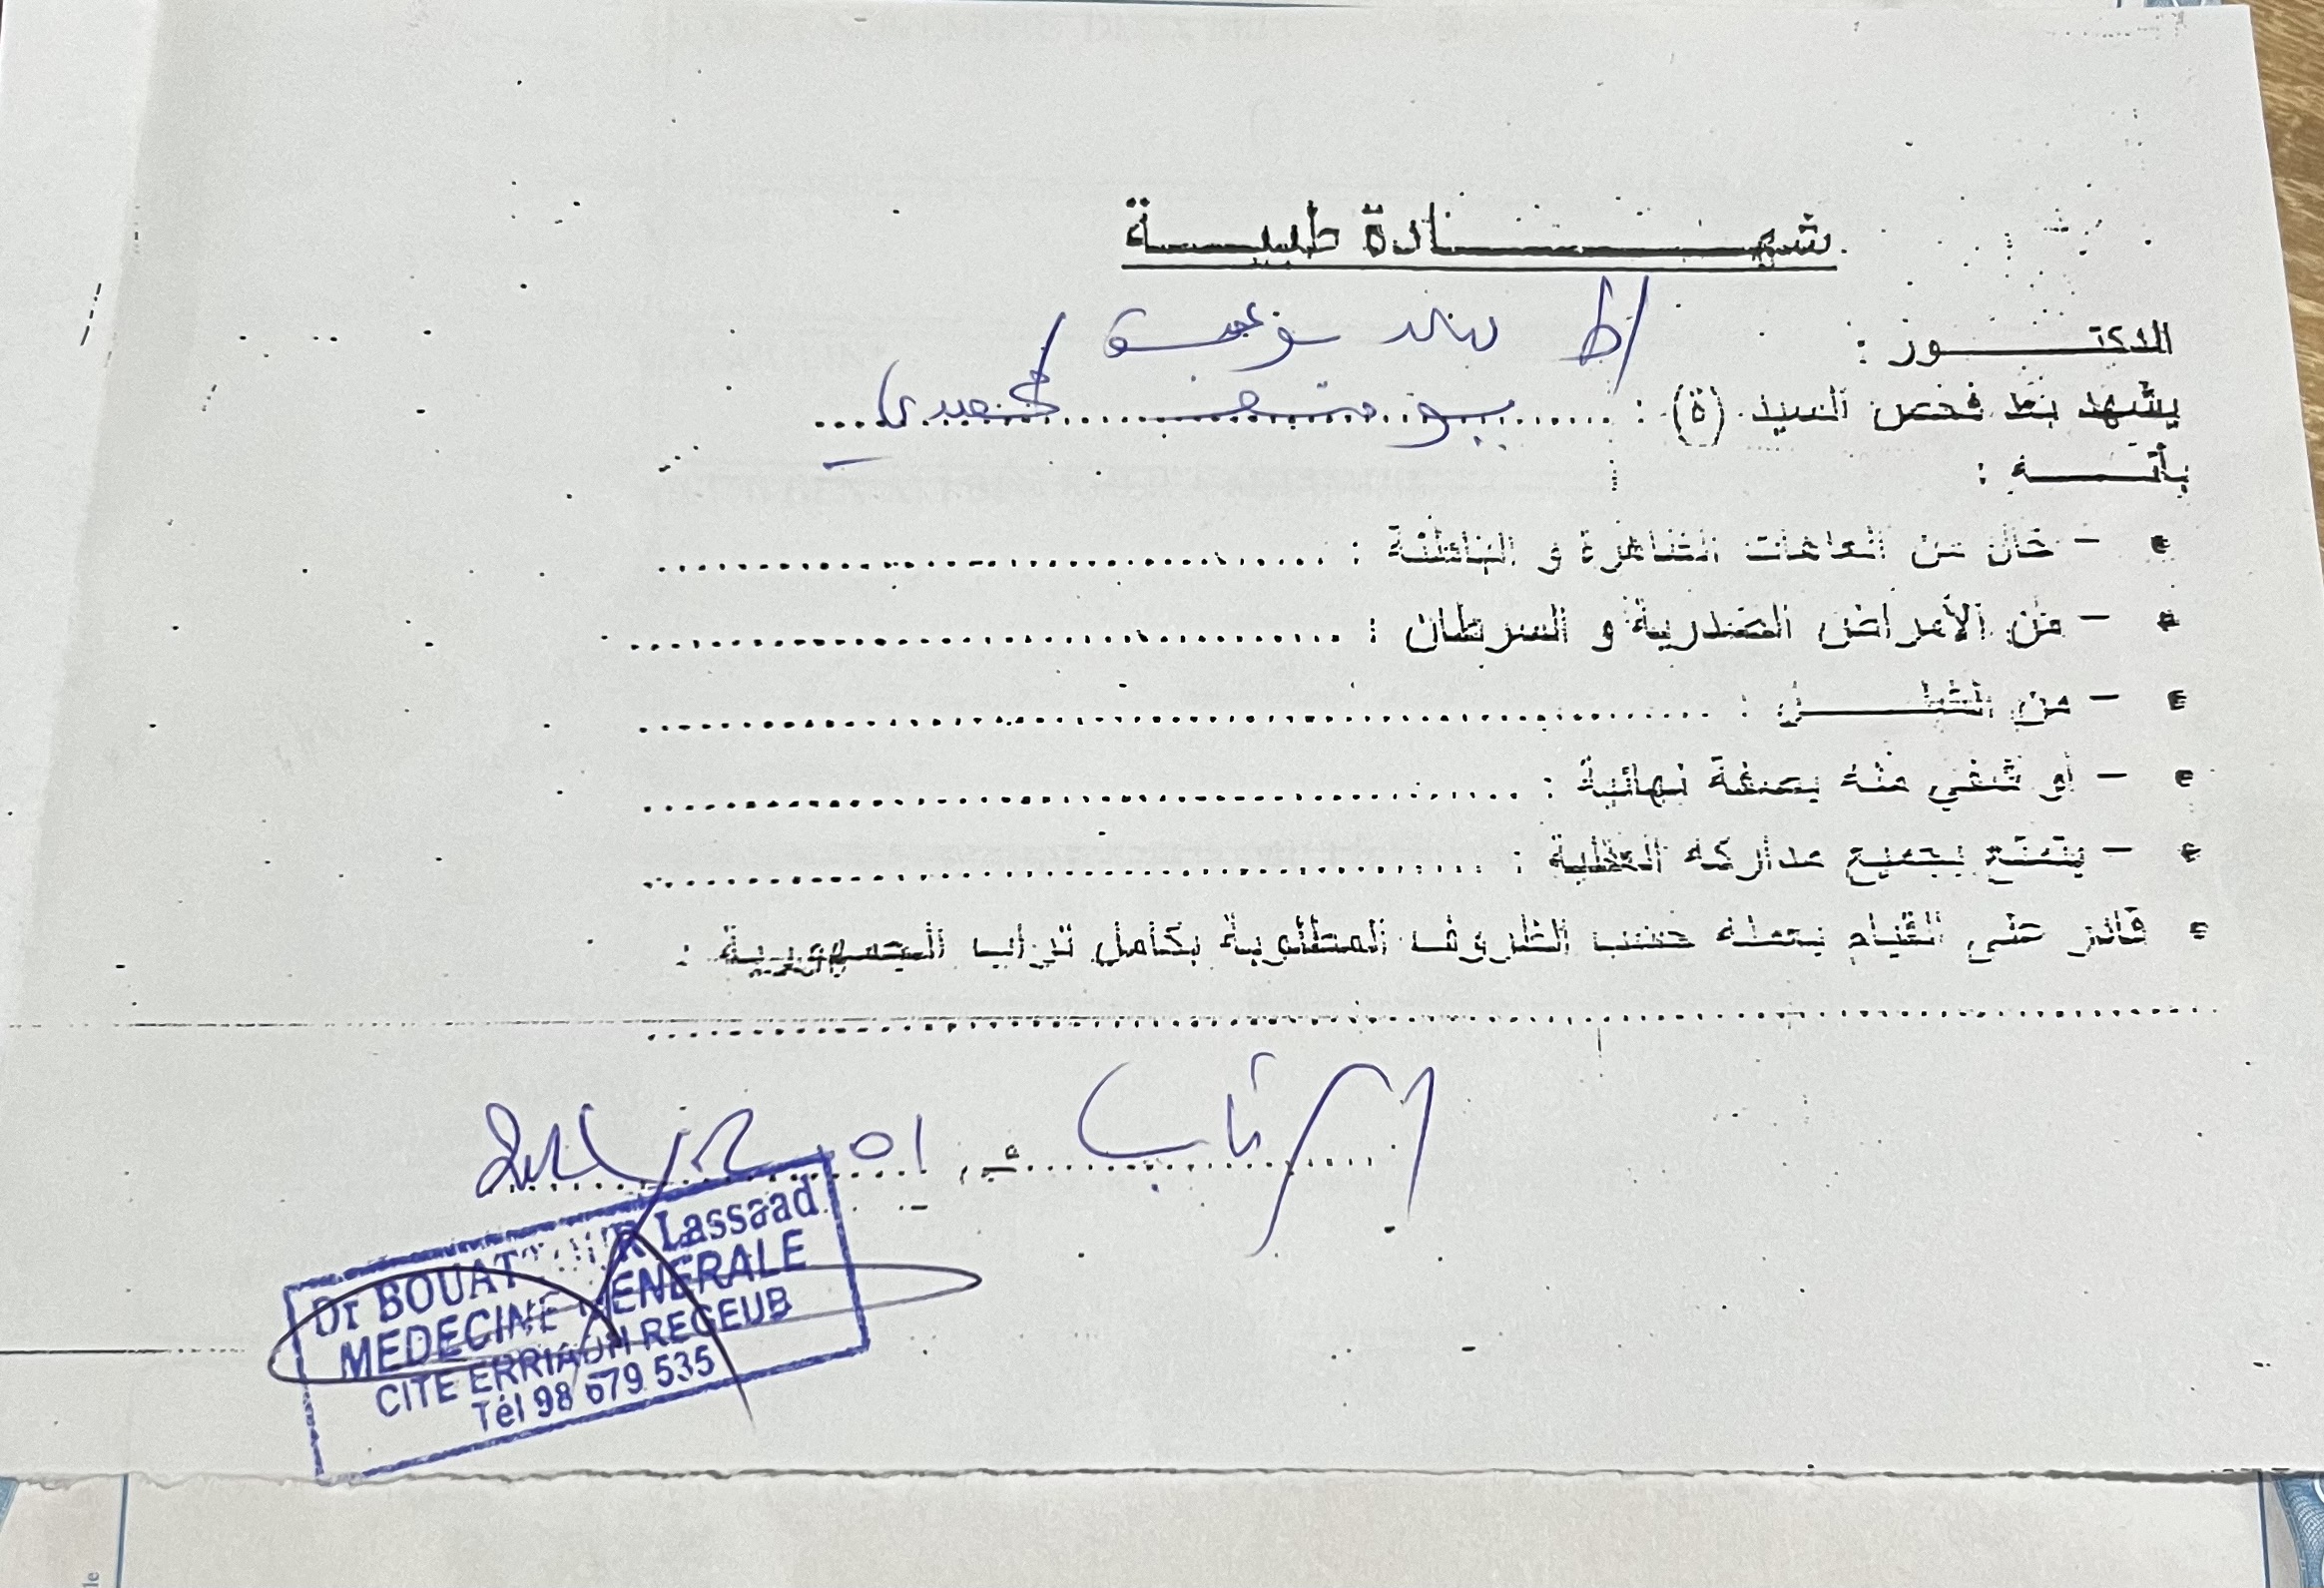 شهـــــــادة طبيـــــة
الدكتـــــــور :
يشهد بعد فحص السيد (ة) : يوسف
بأنـــــه :
- خال من العاهات الظاهرة و الباطنة :
- من الأمراض الصدرية و السرطان :
- من الشلـــــل :
- أو شفي منه بصفة نهائية :
- يتمتع بجميع مداركه العقلية :
قادر على القيام بعمله حسب الظروف المطلوبة بكامل تراب الجمهورية :
الرقاب في 01
Dr Lassaad
MEDECINE GENERALE
CITE ERRIADH REGEUB
Tél 98 679 535